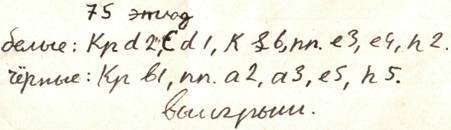 75 этюд
белые: Кр d2, С d1, К b6, пп. e3, e4, h2.
чёрные: Кр b1, пп. a2, a3, e5, h5.
выигрыш.